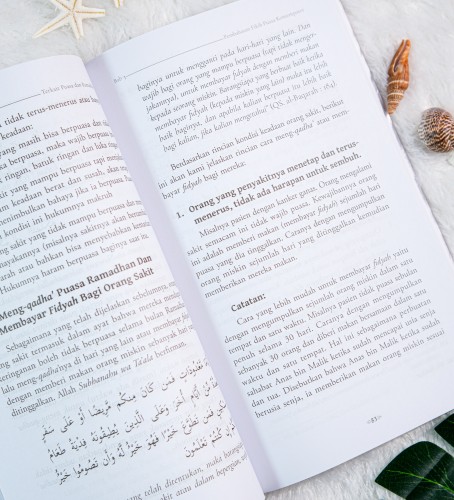 tidak terus-menerus atau h
keadaan:
yang masih bisa berpuasa dan tid
berpuasa, maka wajib berpuasa
ringan, batuk ringan dan lain
kit yang mampu berpuasa tapi men
m keadaan berat dan susah, aka
menimbulkan bahaya jika ia berpuas
i kondisi ini hukumnya makruh
sakit yang tidak mampu berpuasa dan
Hukumnya haram berpuasa baginya saat
Meng-qadha' Puasa Ramadhan Dan
Membayar Fidyah Bagi Orang Sakit
Sebagaimana yang telah dijelaskan sebelumnya,
ng sakit termasuk dalam ayat bahwa mereka
keringanan boleh tidak berpuasa selama bulan
lalu meng-qadha'nya di hari yang lain atau membayar
dengan memberi makan orang miskin sebanyak
ditinggalkan. Allah Subhanahu wa Ta'ala berfirman,
مَعْدُودَاتٍ فَمَن كَانَ مِنكُم مَّرِيضًا أَوْ عَلَى سَفَرٍ
أَيَّامٍ أُخَرَ وَعَلَى الَّذِينَ يُطِيقُونَهُ فِدْيَةٌ طَعَامُ
تَطَوَّعَ خَيْرًا فَهُوَ خَيْرٌ لَّهُ وَأَن تَصُومُوا خَيْرٌ
كُنتُمْ تَعْلَمُونَ
yang telah ditentukan, maka barang
sakit atau dalam
baginya untuk mengganti pada hari-hari yang lain. Dan
wajib bagi orang yang mampu berpuasa tapi tidak menger-
jakannya, untuk membayar fidyah dengan memberi makan
kepada orang miskin. Barangsiapa yang berbuat baik ketika
membayar fidyah (kepada miskin yang lain) maka itu lebih
baik baginya, dan apabila kalian berpuasa itu lebih baik
bagi kalian, jika kalian mengetahui" (QS. al-Baqarah:
Berdasarkan rincian kondisi keadaan orang sakit, berikut
ini akan kami jelaskan rincian cara meng-qadha' atau mem-
bayar fidyah bagi mereka:
1. Orang yang penyakitnya menetap dan terus-
menerus, tidak ada harapan untuk sembuh.
Misalnya pasien dengan kanker ganas. Orang mengalami
sakit semacam ini tidak wajib puasa. Kewajibannya orang
ini adalah memberi makan (membayar fidyah) sejumlah hari
puasa yang dia tinggalkan. Caranya dengan mengumpulkan
orang miskin sejumlah hari yang ditinggalkan kemudian
memberikan mereka makan:
Catatan:
Cara yang lebih mudah untuk membayar fidyah yaitu
dengan mengumpulkan sejumlah orang miskin dalam satu
tempat dan satu waktu. Misalnya pasien tidak puasa bulan
penuh selama 30 hari. Caranya dengan mengumpulkan
sebanyak 30 orang dan diberi makan bersamaan dalam satu
waktu dan satu tempat. Hal ini sebagaimana perbuatan
sahabat Anas bin Malik ketika sudah mencapai usia senja
dan tua. Disebutkan bahwa Anas bin Malik ketika sudah
berusia senja, ia memberikan makan orang miskin sesuai
83